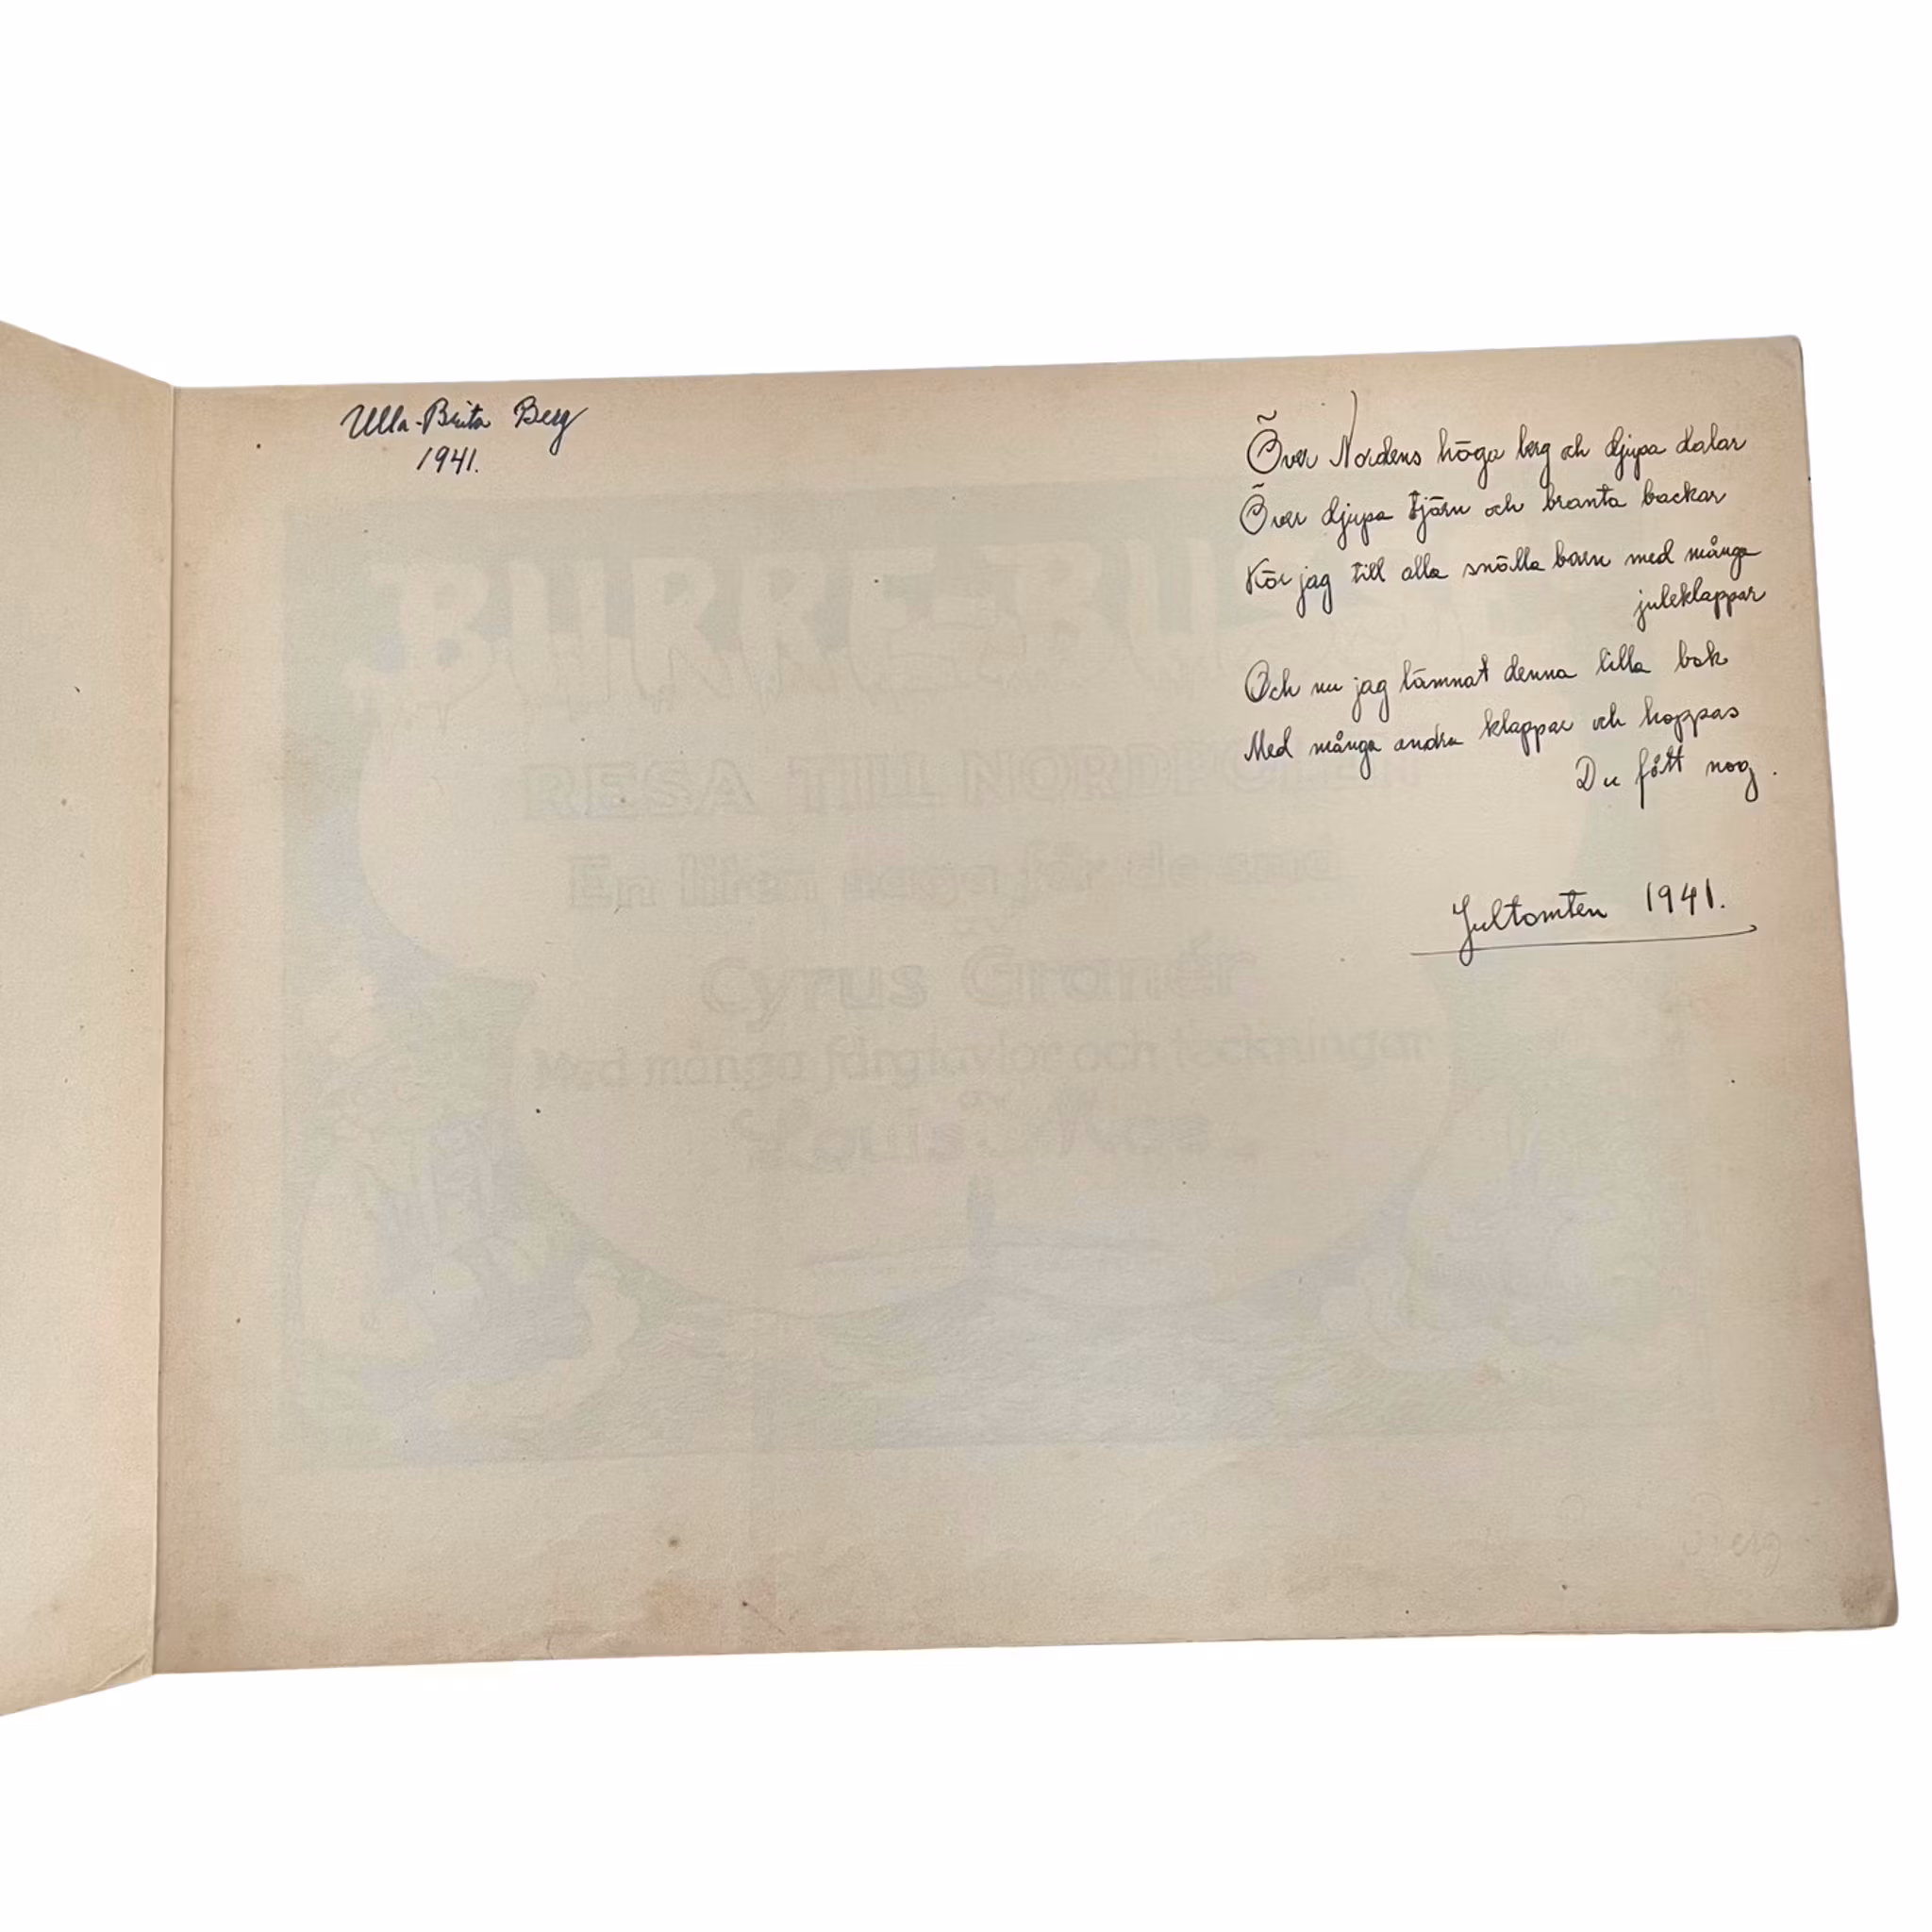 Ulla-Brita Berg
1941.
Över Nordens höga berg och djupa dalar
Över djupa tjärn och branta backar
Kör jag till alla snälla barn med många
juleklappar
Och nu jag lämnat denna lilla bok
Med många andra klappar och hoppas
Du fått nog.
Jultomten 1941.
BURRE-BUSSE
RESA TILL NORDPOLEN
En liten saga för de små
av
Cyrus Granér
Med många färgtavlor och teckningar
av
Louis Moe
Berg